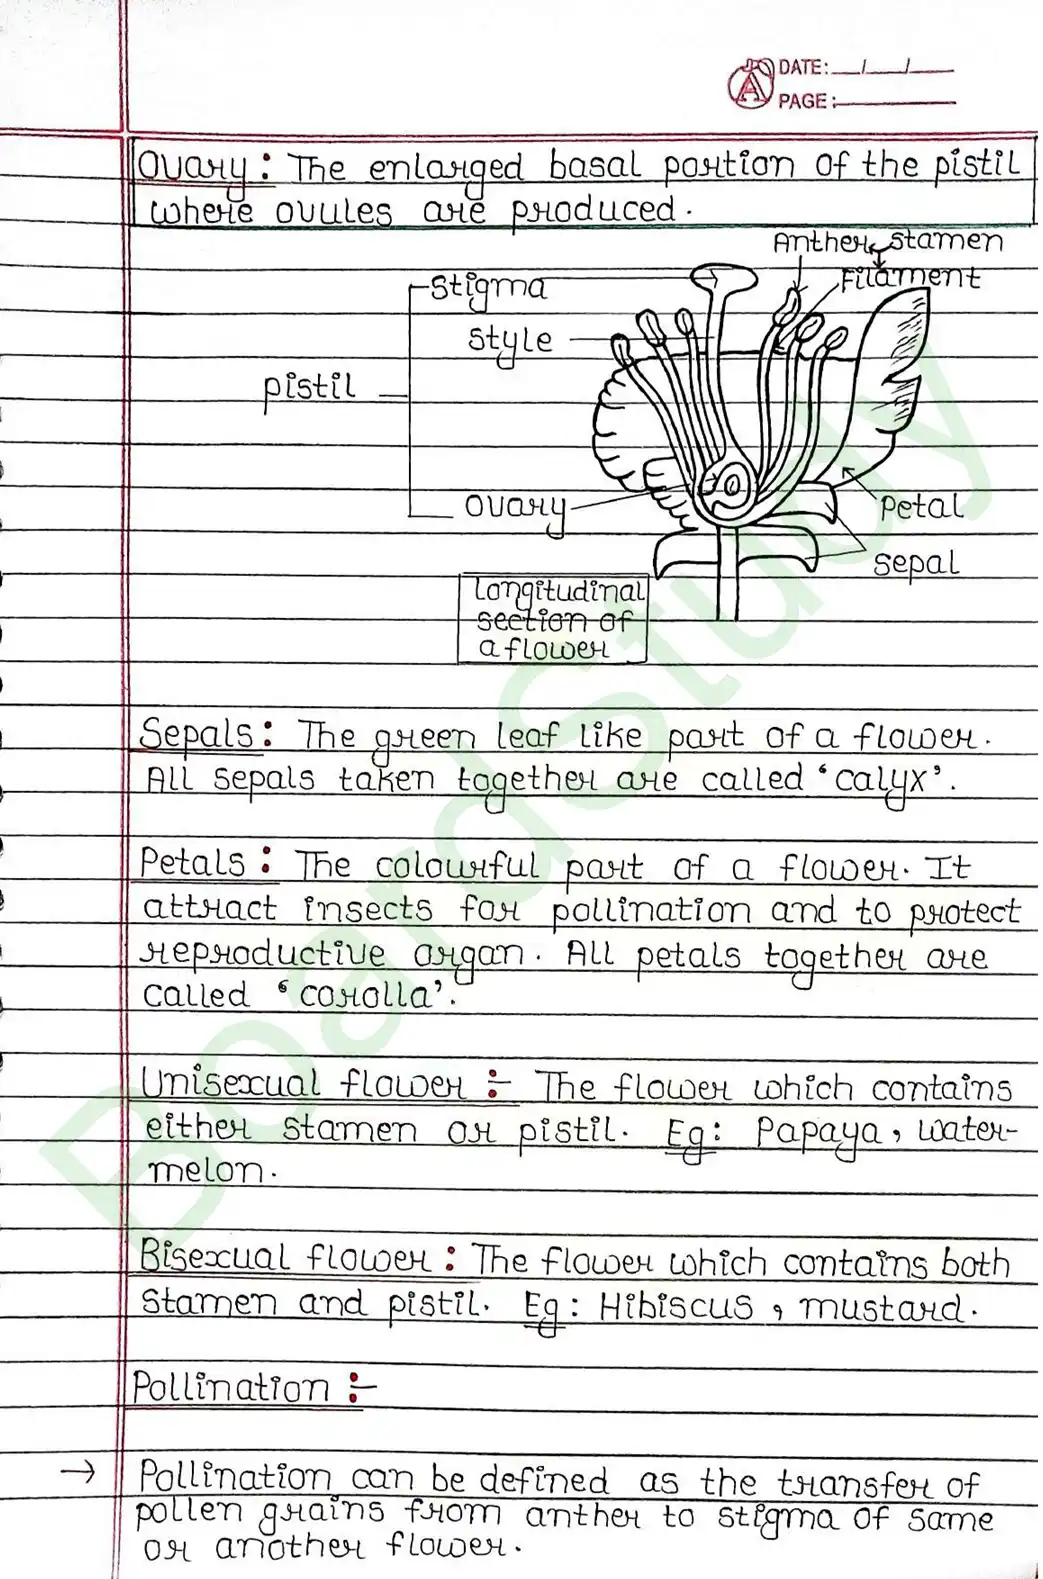 DATE: __/__/__
PAGE:
Ovary: The enlarged basal portion of the pistil
where ovules are produced.
Anther, stamen
Stigma
Filament
style
pistil
ovary
Petal
sepal
Longitudinal
section of
a flower
Sepals: The green leaf like part of a flower.
All sepals taken together are called ‘calyx’.
Petals: The colourful part of a flower. It
attract insects for pollination and to protect
reproductive organ. All petals together are
called ‘corolla’.
Unisexual flower :- The flower which contains
either stamen or pistil. Eg: Papaya, water-
melon.
Bisexual flower: The flower which contains both
stamen and pistil. Eg: Hibiscus, mustard.
Pollination :-
→ Pollination can be defined as the transfer of
pollen grains from anther to stigma of same
or another flower.
BoardStudy